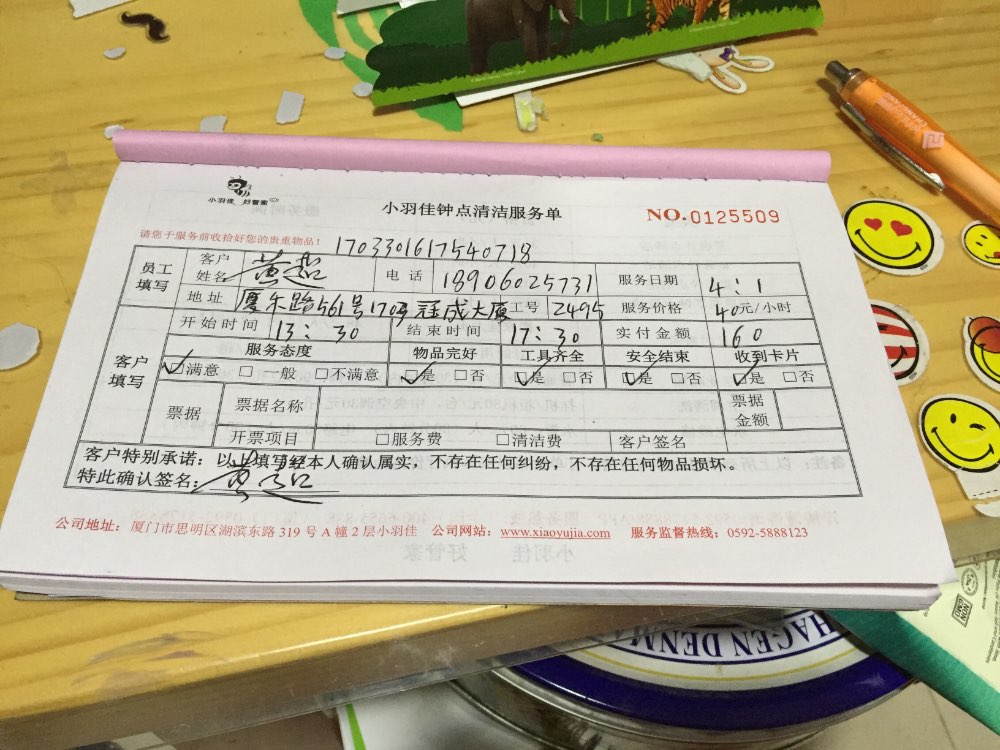 小羽佳 好管家
小羽佳钟点清洁服务单
NO.0125509
请您于服务前收拾好您的贵重物品！
1703301617540718
员工填写 客户姓名 黄超 电话 18906025731 服务日期 4:1
地址 厦禾路561号 冠成大厦 工号 2495 服务价格 40元/小时
客户填写 开始时间 13:30 结束时间 17:30 实付金额 160
服务态度 物品完好 工具齐全 安全结束 收到卡片
☑满意 □一般 □不满意 ☑是 □否 ☑是 □否 ☑是 □否 ☑是 □否
票据 票据名称 票据金额
开票项目 □服务费 □清洁费 客户签名
客户特别承诺：以上填写经本人确认属实，不存在任何纠纷，不存在任何物品损坏。
特此确认签名：黄超
公司地址：厦门市思明区湖滨东路 319 号 A 幢 2 层小羽佳 公司网站：www.xiaoyujia.com 服务监督热线：0592-5888123
HAGEN DENMA
NON GMO